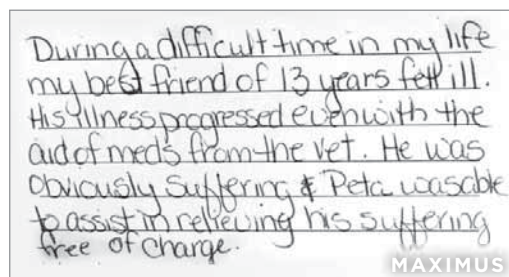 During a difficult time in my life
my best friend of 13 years fell ill.
His illness progressed even with the
aid of meds from the vet. He was
Obviously suffering & Peta was able
to assist in relieving his suffering
free of charge.
MAXIMUS